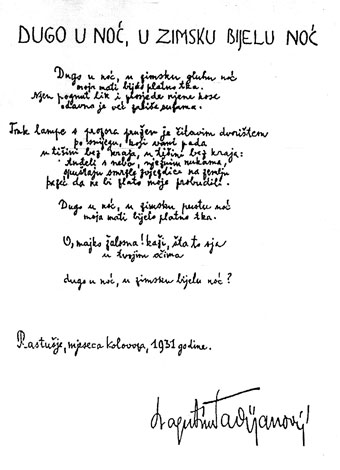 DUGO U NOĆ, U ZIMSKU BIJELU NOĆ
Dugo u noć, u zimsku gluhu noć
moja mati bijelo platno tka.
Njen pognut lik i prosjede njene kose
odavno je već zališe suzama.
Trak lampe s prozora pružen je čitavim dvorištem
po snijegu, koji vani pada
u tišini bez kraja, u tišini bez kraja:
Anđeli s neba, nježnim rukama,
spuštaju smrzle zvjezdice na zemlju
pazeć da ne bi zlato moje probudili.
Dugo u noć, u zimsku pustu noć
moja mati bijelo platno tka.
O, majko žalosna! kaži, šta to sja
u tvojim očima
dugo u noć, u zimsku bijelu noć?
Rastušje, mjeseca kolovoza, 1931 godine.
Dragutin Tadijanović